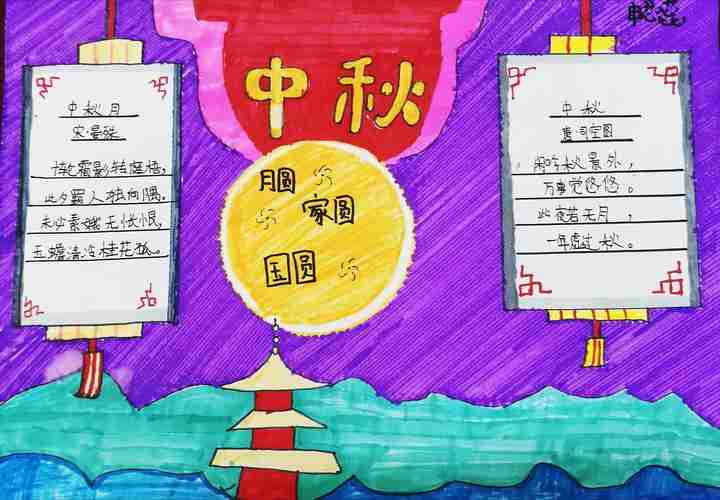 中秋
月圆
家圆
国圆
中秋月
宋·晏殊
霜影转庭梧,
此夕羁人独向隅。
未必素娥无怅恨,
玉蟾清冷桂花孤。
中秋
唐·司空图
闲吟秋景外,
万事觉悠悠。
此夜若无月,
一年虚过秋。